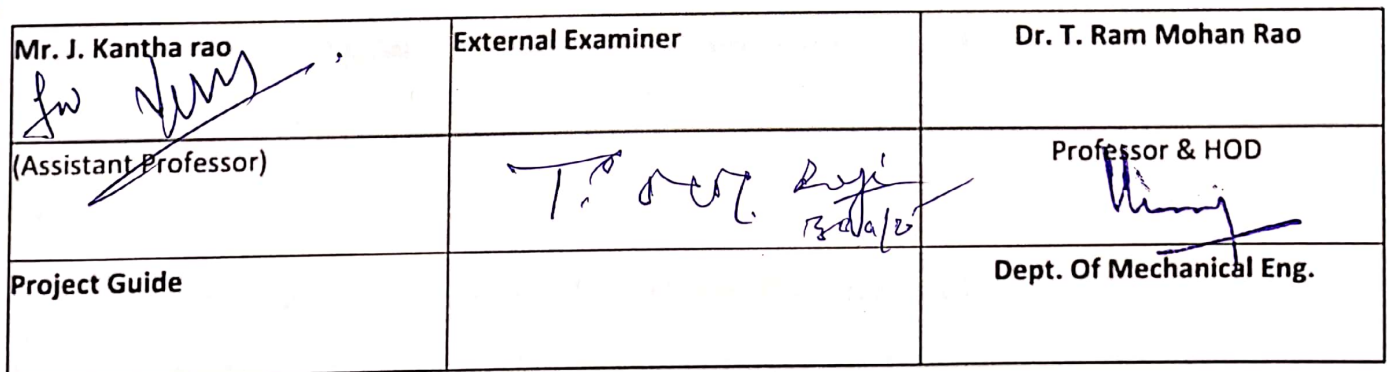 Mr. J. Kantha rao
External Examiner
Dr. T. Ram Mohan Rao
(Assistant Professor)
Professor & HOD
Project Guide
Dept. Of Mechanical Eng.